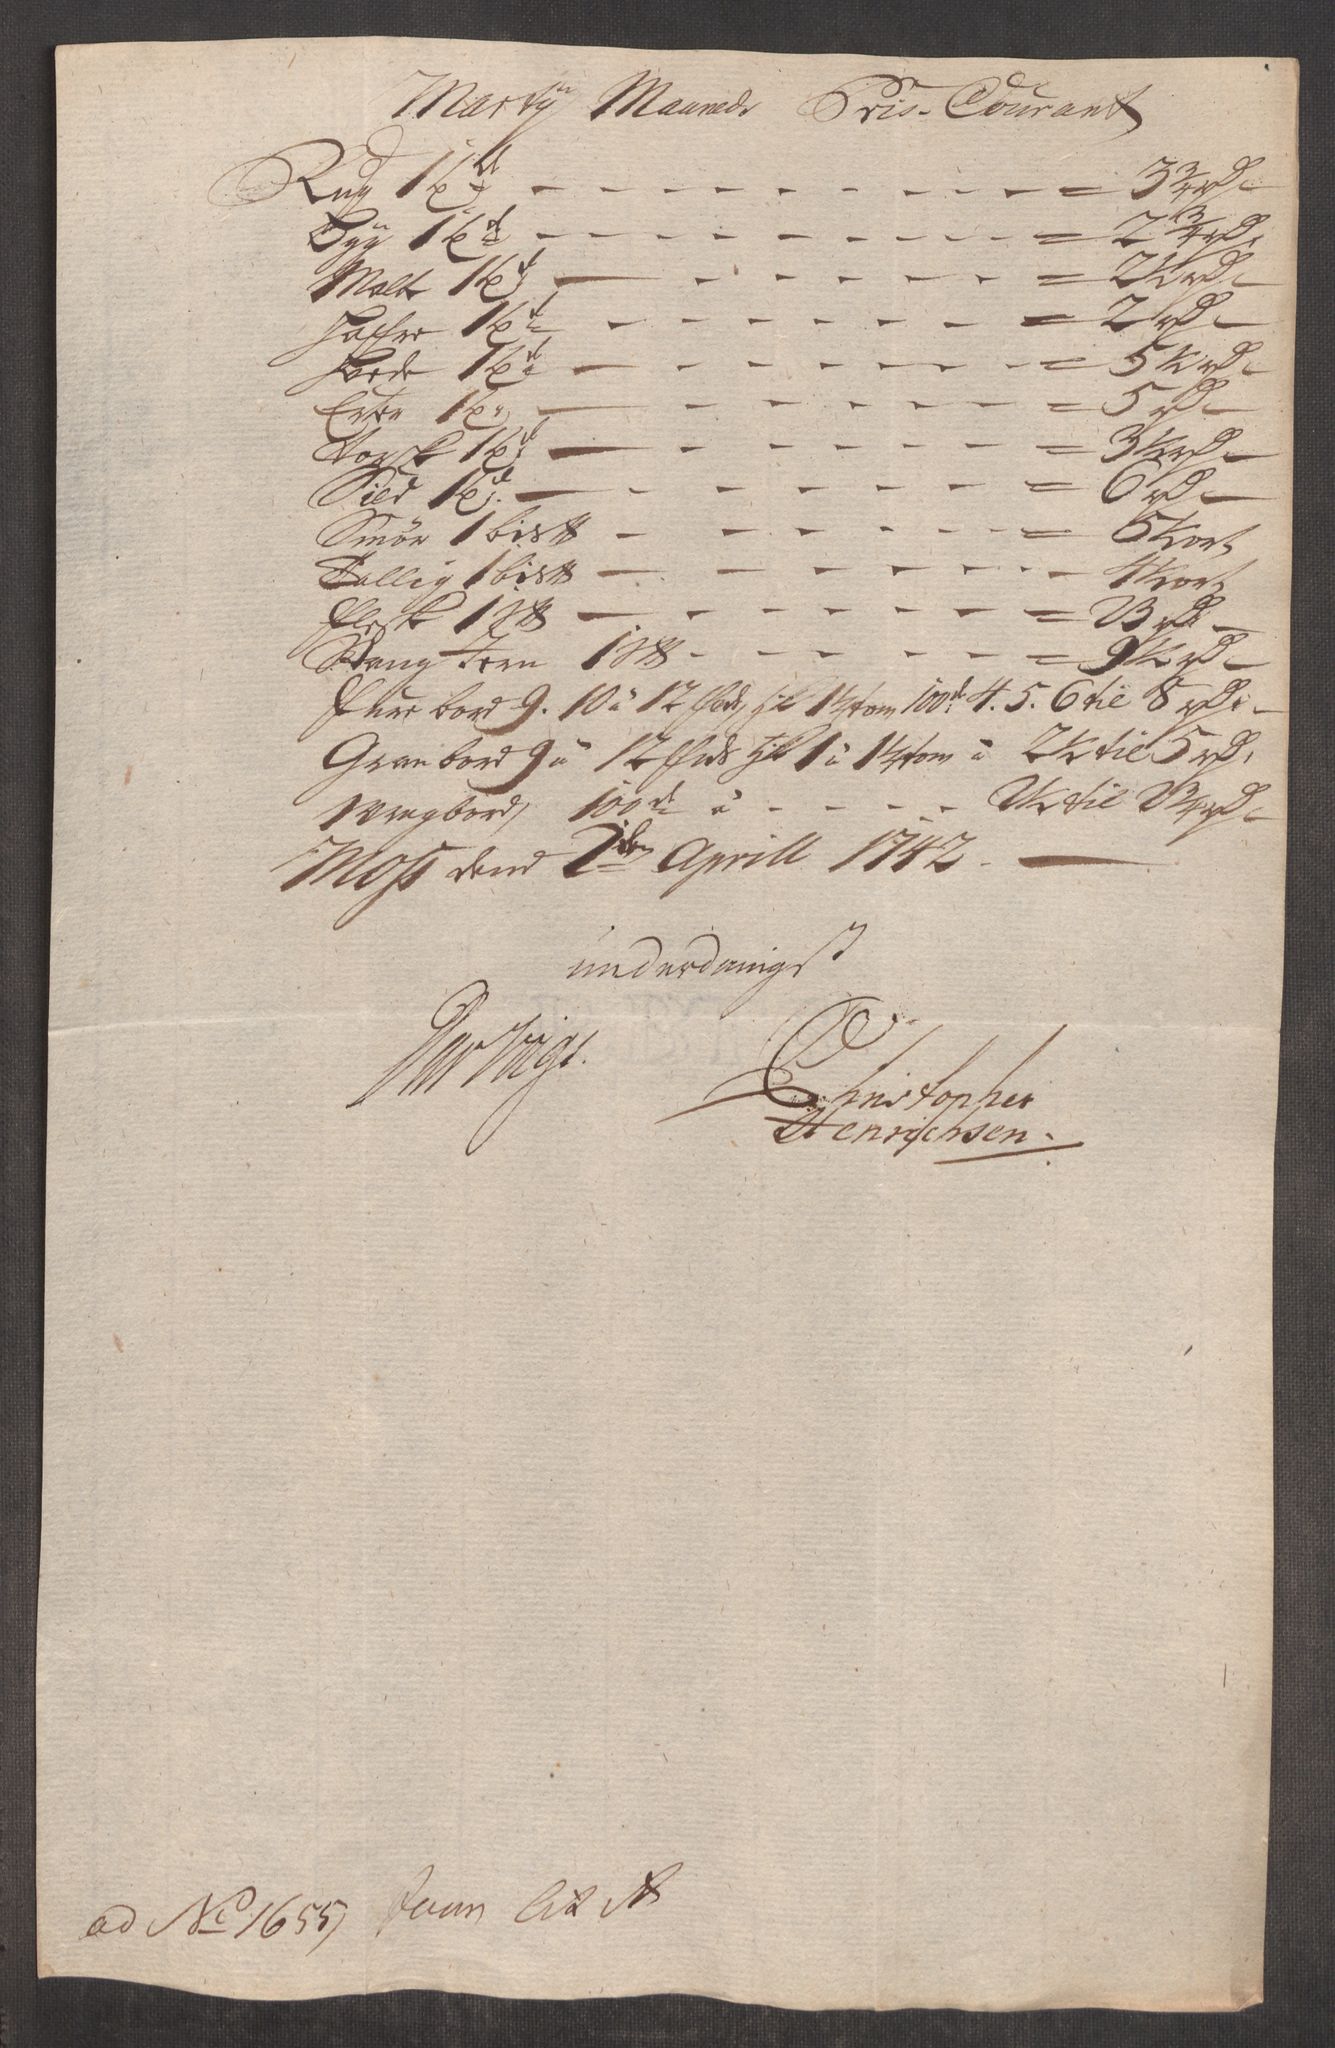 Martÿ Maaneds Pris-Courant
Rug 1 td - - - - - - - - - = 3 3/4 rd
Byg 1 td - - - - - - - - - = 2 3/4 rd
Malt 1 td - - - - - - - = 2 1/2 rd
Hafre 1 td - - - - - - - = 2 rd
1 td - - - - - - - = 5 1/2 rd
Erter 1 t - - - - - - - = 5 rd
Torsk 1 td - - - - - - - = 3 1/2 rd
Sild 1 td - - - - - - - = 6 rd
Smör 1 bis℔ - - - - - - - = 5 ort
Tallig 1 bis℔ - - - - - - - 4 ort
Flesk 1 S℔ - - - - - - - = rd
Stang Jern 1 S℔ - - - - - - = 9 1/2 rd
Fure bord 9. 10 à 12 fods 1 1/4 tom 100d 4. 5. 6 til 8 rd
Gran bord 9 à 12 fods 1 à 1 1/4 tom à 2 1/2 til 5 rd
Wragbord 100d à - - - - til rd
Moss dend Aprill 1742.
underdanigst
Christopher
Henrichsen.
ad No 1655 Lit A